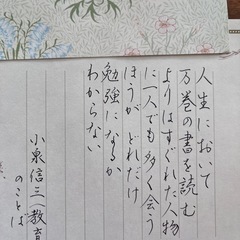 人生において
万巻の書を読む
よりはすぐれた人物
に一人でも多く会う
ほうがどれだけ
勉強になるか
わからない
小泉信三(教育
のことば